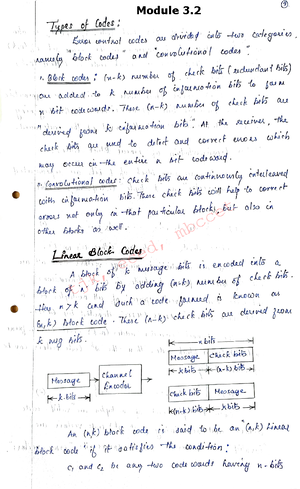 Module 3.2
Types of Codes:
Error control codes are divided into two categories
namely "block codes" and "convolutional codes".
Block codes: (n-k) number of check bits (redundant bits)
are added to k number of information bits to form
n bit codewords. These (n-k) number of check bits are
derived from k information bits. At the receiver, the
check bits are used to detect and correct errors which
may occur in the entire n bit codeword.
Convolutional codes: Check bits are continuously interleaved
with information bits. These check bits will help to correct
errors not only in that particular block but also in
other blocks as well.
Linear Block Codes
A block of k message bits is encoded into a
block of n bits by adding (n-k) number of check bits.
n>k and such a code formed is known as
(n,k) block code. These (n-k) check bits are derived from
k msg bits.
n bits
Message Check bits
k bits (n-k) bits
Message Channel Encoder
k bits
Check bits Message
(n-k) bits k bits
An (n,k) block code is said to be an "(n,k) linear
block code" if it satisfies the condition:
c1 and c2 be any two codewords having n-bits